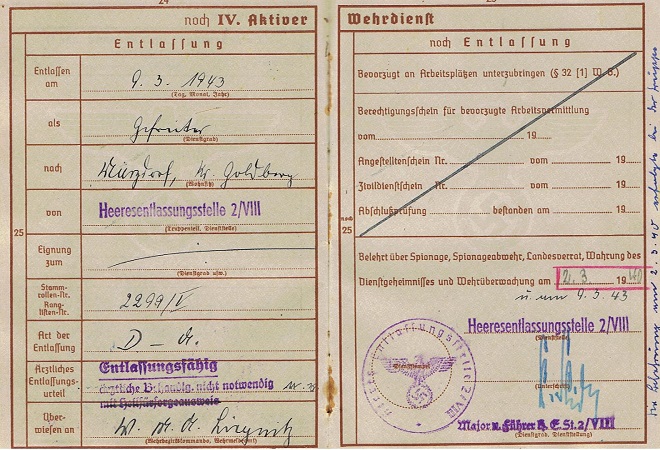 24
noch IV. Aktiver
Entlassung
Entlassen am 9. 3. 1943
(Tag, Monat, Jahr)
als Gefreiter
(Dienstgrad)
nach Kr. Goldberg
(Wohnsitz)
von Heeresentlassungsstelle 2/VIII
(Truppenteil, Dienststelle)
25
Eignung zum
(Dienstgrad usw.)
Stammrollen-Nr. Ranglisten-Nr. 2299/V
Art der Entlassung
Ärztliches Entlassungsurteil
Entlassungsfähig
ärztliche Behandlg. nicht notwendig
mit Heilfürsorgeausweis
Überwiesen an W. M. A. Liegnitz
(Wehrbezirkskommando, Wehrmeldeamt)
Wehrdienst
noch Entlassung
Bevorzugt an Arbeitsplätzen unterzubringen (§ 32 [1] W.G.)
Berechtigungsschein für bevorzugte Arbeitsvermittlung
vom 19
Angestelltenschein Nr. vom 19
Zivildienstschein Nr. vom 19
Abschlußprüfung bestanden am 19
noch 25
Belehrt über Spionage, Spionageabwehr, Landesverrat, Wahrung des
Dienstgeheimnisses und Wehrüberwachung am 2. 3. 19 40
u. am 9. 3. 43
Heeresentlassungsstelle 2/VIII
(Dienststelle)
Heeresentlassungsstelle 2/VIII
Dienststempel
(Unterschrift)
Major u. Führer H.E.St. 2/VIII
(Dienstgrad, Dienststellung)